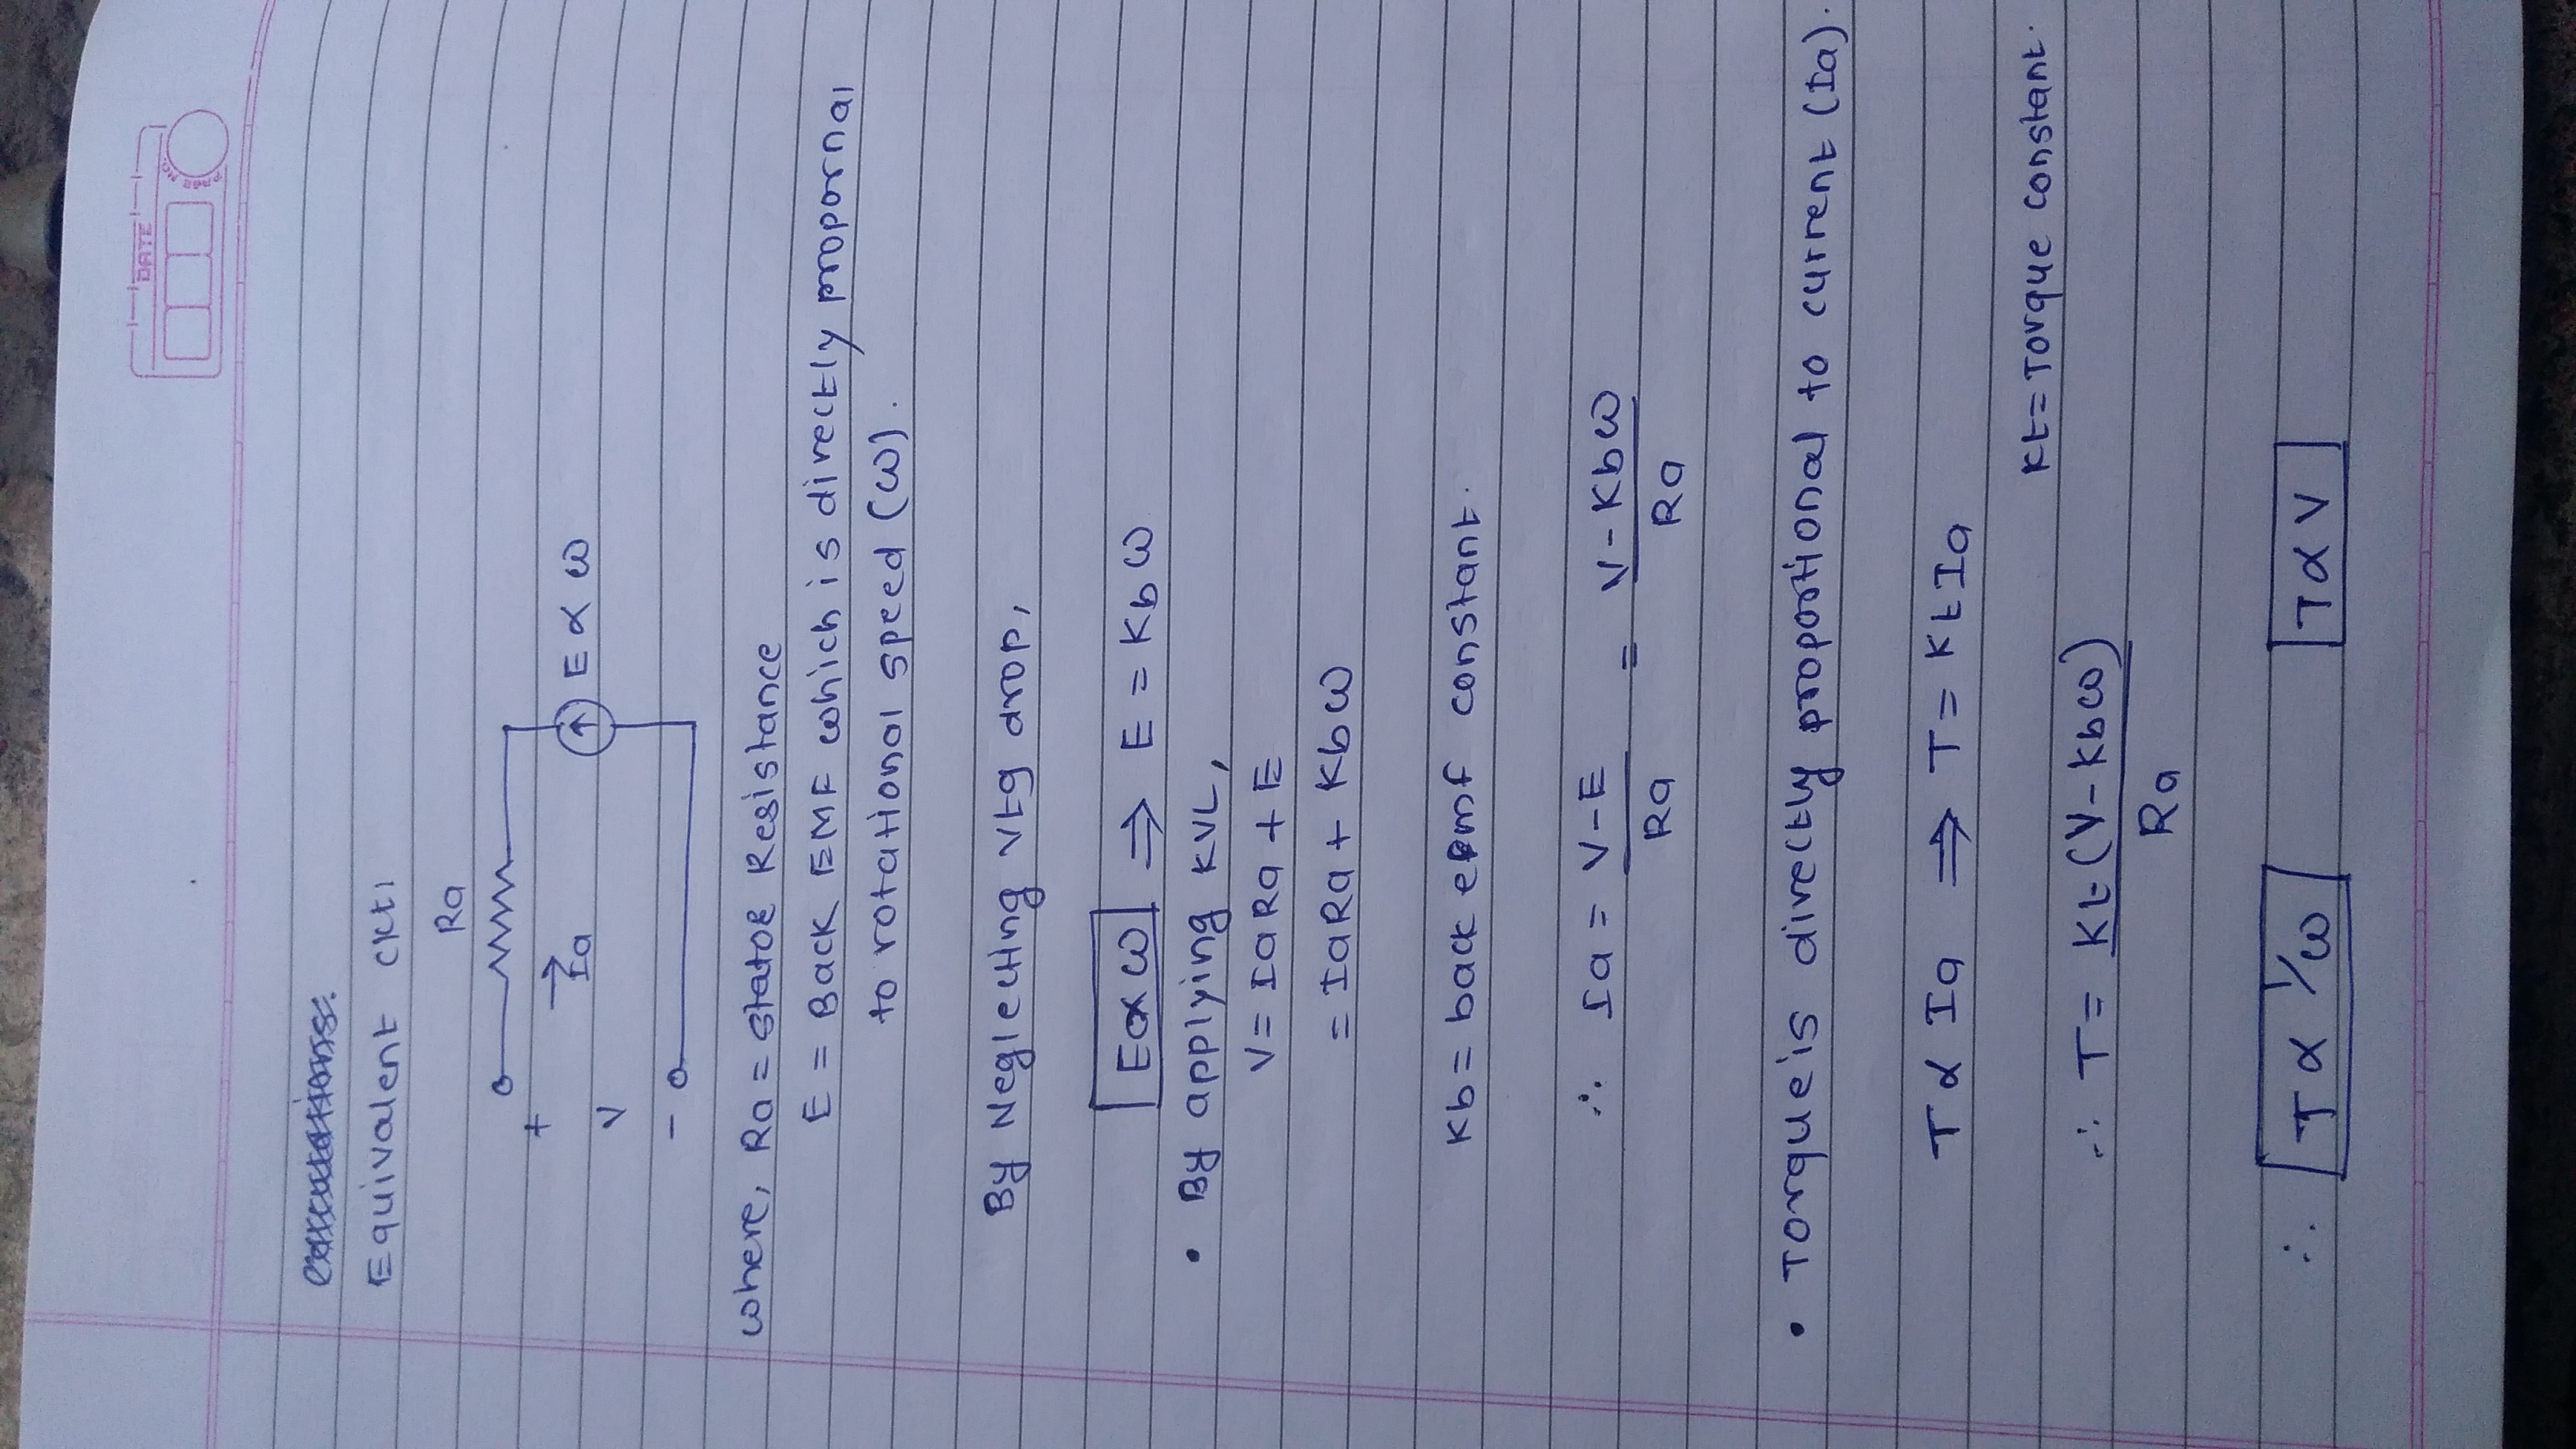 DATE
PAGE NO.
Equivalent ckt,
Ra
+
Ia
E ∝ ω
V
-
where, Ra = stator Resistance
E = Back EMF which is directly propornal
to rotational speed (ω).
By Neglecting vtg drop,
E ∝ ω ⇒ E = Kb ω
• By applying KVL,
V = IaRa + E
= IaRa + Kb ω
Kb = back emf constant.
∴ Ia = V-E / Ra = V - Kbω / Ra
• Torque is directly proportional to current (Ia).
T ∝ Ia ⇒ T = Kt Ia
Kt = Torque constant.
∴ T = Kt (V - Kbω) / Ra
∴ T ∝ 1/ω T ∝ V